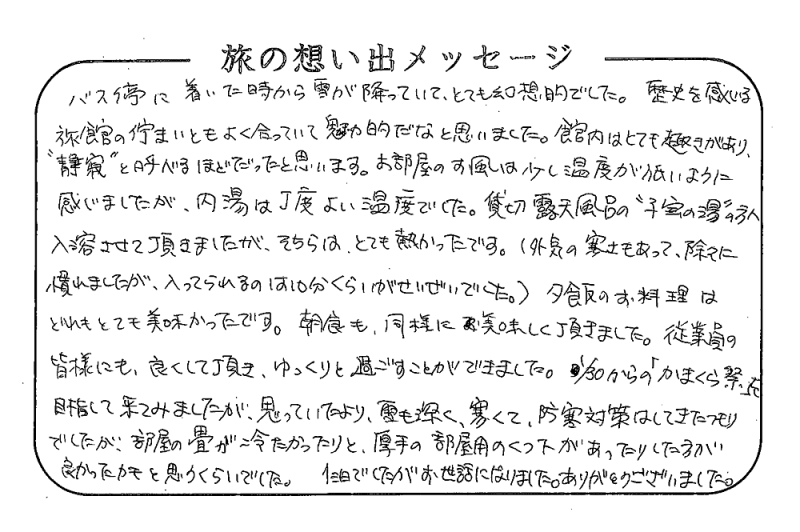 旅の想い出メッセージ
バス停に着いた時から雪が降っていて、とても幻想的でした。歴史を感じる
旅館の佇まいともよく合っていて魅力的だなと思いました。館内はとても趣きがあり、
"静寂"と呼べるほどだったと思います。お部屋のお風呂は少し温度が低いように
感じましたが、内湯は丁度よい温度でした。貸切露天風呂の"子宝の湯"の
入浴させて頂きましたが、そちらは、とても熱かったです。(外気の寒さもあって、除々に
慣れましたが、入ってられるのは10分くらいがせいぜいでした。) 夕飯のお料理は
どれもとても美味かったです。朝食も、同様に美味しく頂きました。従業員の
皆様にも、良くして頂き、ゆっくりと過ごすことができました。1/30からの「かまくら祭」を
目指して来てみましたが、思っていたより、雪も深く、寒くて、防寒対策はしてきたつもり
でしたが、部屋の畳が冷たかったりと、厚手の部屋用のくつ下があったりした方が
良かったカモと思うくらいでした。1泊でしたがお世話になりました。ありがとうございました。